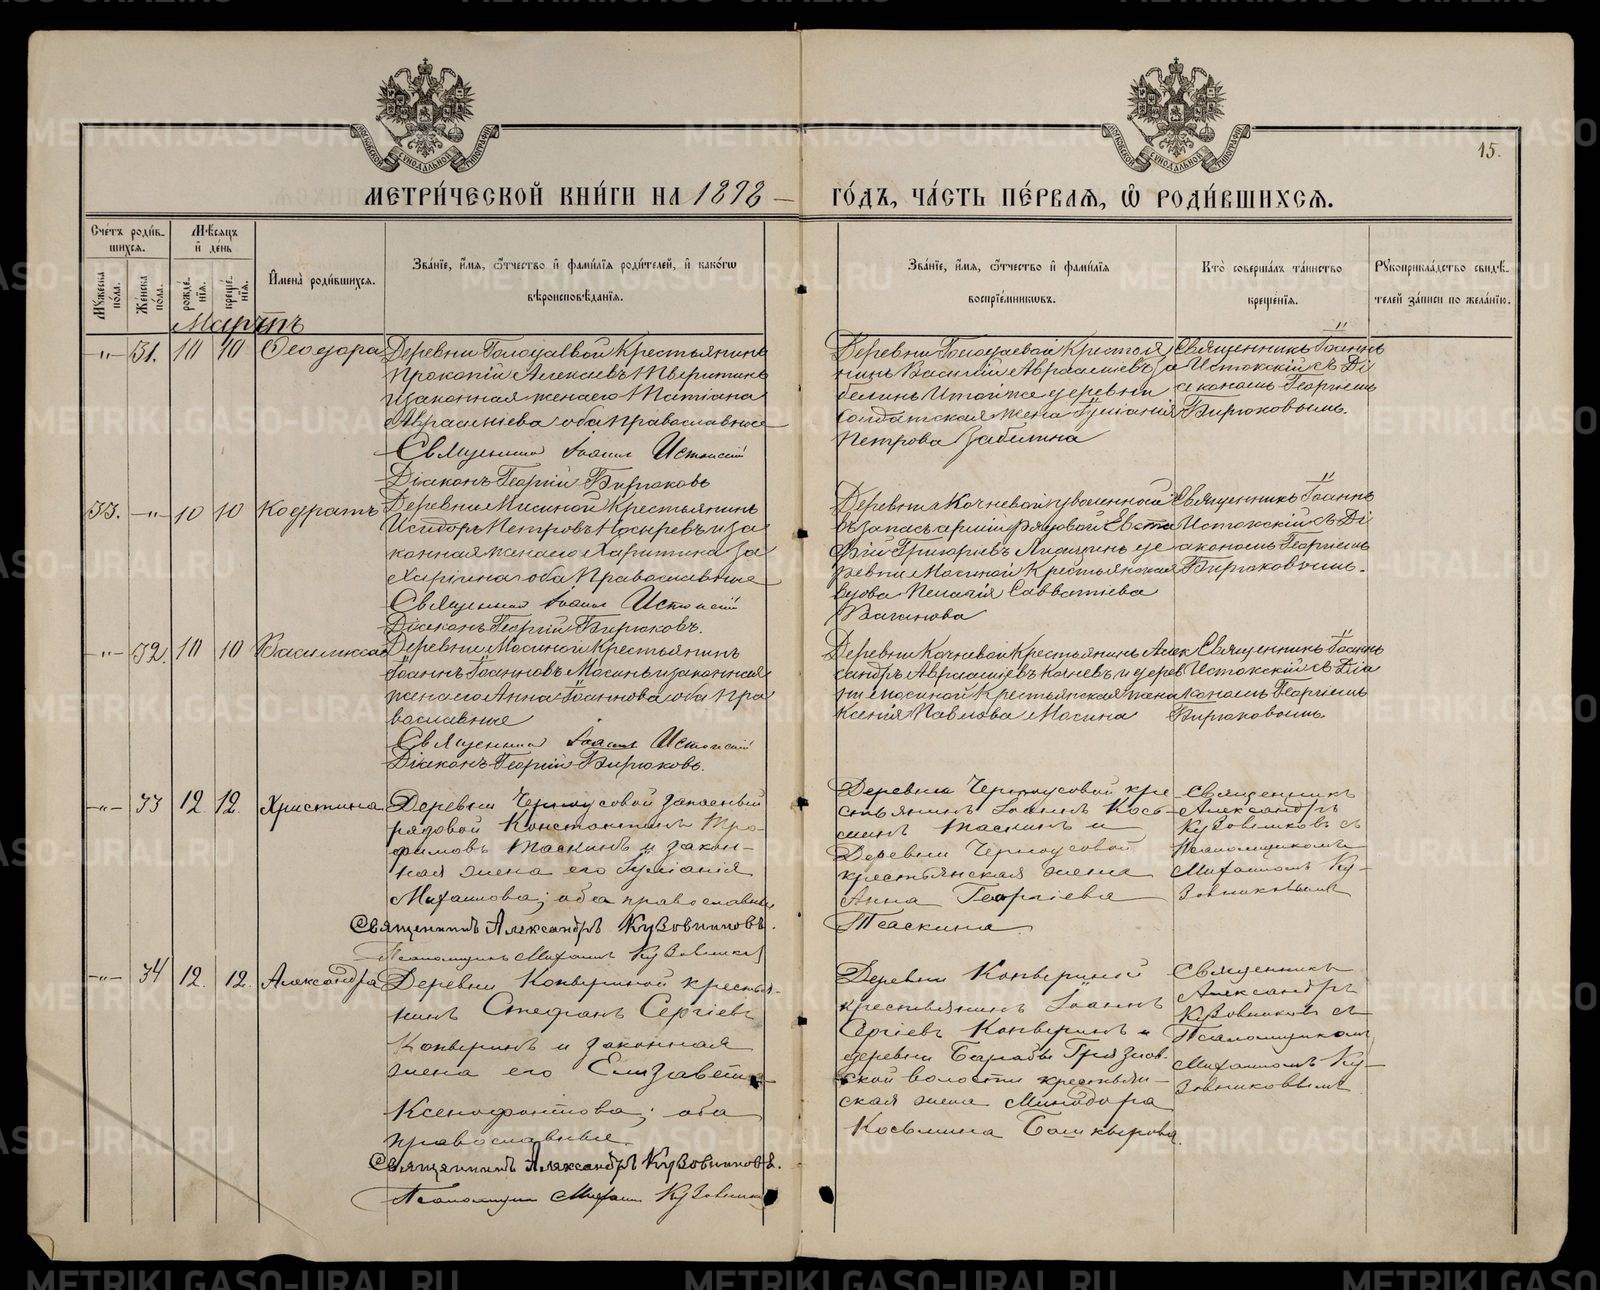 15.
МЕТРИ́ЧЕСКОЙ КНИ́ГИ НА 1898
ГО́ДЪ, ЧА́СТЬ ПЕ́РВАѦ, Ѡ РОДИ́ВШИХСѦ.
Сче́тъ роди́в-
шихся.
Мѣ́сяцъ
и де́нь
Мужеска по́ла.
Же́нска по́ла.
рожде́-
нія.
креще́-
нія.
Имена̀ роди́вшихся.
Зва́ніе, и́мя, ѻ́тчество и фами́лія роди́телей, и како́гѡ
вѣроисповѣ́данія.
Зва́ніе, и́мя, ѻ́тчество и фами́лія
воспріе́мниковъ.
Кто̀ соверша́лъ та́инство
креще́нія.
Рꙋкоприкла́дство свидѣ́-
телей за́писи по жела́нію.
Мартъ
-"- 31. 10 10 Ѳеодора
Деревни Крестьянинъ
Прокопій Алексѣевъ
и законная жена его Татіана
Аврааміева оба православные
Священник Іоанн Истокскій
Діаконъ Георгій Бирюковъ
Деревни Крестья
нинъ Василій Аврааміевъ За
белинъ и той же деревни
солдатская жена
Петрова Забелина
Священникъ Іоаннъ
Истокскій съ Ді
аконом Георгіемъ
Бирюковымъ.
33. -"- 10 10 Кодратъ
Деревни Мосиной Крестьянинъ
Исидоръ Петровъ и за
конная жена его Харитина За
харіина оба Православные
Священник Іоанн Истокскій
Діаконъ Георгій Бирюковъ.
Деревни Кочневой уволенный
въ запасъ арміи рядовой Евста
фій Григорьевъ де
ревни Мосиной Крестьянская
вдова Пелагія Савватіева
Ваганова
Священникъ Іоаннъ
Истокскій съ Ді
акономъ Георгіемъ
Бирюковымъ.
-"- 32. 10 10 Василисса
Деревни Мосиной Крестьянинъ
Іоаннъ Іоанновъ Мосинъ и законная
жена его Анна Іоаннова оба Пра
вославные
Священник Іоанн Истокскій
Діаконъ Георгій Бирюковъ.
Деревни Кочневой Крестьянинъ Алек
сандръ Аврааміевъ Кочневъ и дерев
ни Мосиной Крестьянская жена
Ксенія Павлова Мосина
Священникъ Іоаннъ
Истокскій съ Діа
кономъ Георгіемъ
Бирюковымъ.
-"- 33 12 12. Христина
Деревни Черноусовой запасный
рядовой Константинъ Тро-
фимовъ Таскинъ и закон-
ная жена его Іуліанія
Михаилова; оба православные
Священникъ Александръ Кузовниковъ.
Псаломщикъ Михаилъ Кузовников
Деревни Черноусовой кре
стьянинъ Іоаннъ Кось-
минъ Таскинъ и
Деревни Черноусовой
крестьянская жена
Анна Георгіева
Таскина.
Священникъ
Александръ
Кузовниковъ съ
Псаломщикомъ
Михаиломъ Ку-
зовниковымъ
-"- 34 12. 12. Александра
Деревни Конвериной крестья-
нинъ Стефанъ Сергіевъ
Конверинъ и законная
жена его Елизавета
Ксенофонтова; оба
православные.
Священникъ Александръ Кузовниковъ.
Псаломщик Михаил Кузовников
Деревни Конвериной
крестьянинъ Іоаннъ
Сергіевъ Конверинъ и
деревни Барабы Грязнов-
ской волости крестьян-
ская жена Минодора
Косьмина Башкырова.
Священникъ
Александръ
Кузовников съ
Псаломщиком
Михаиломъ Ку-
зовниковымъ
METRIKI.GASO-URAL.RU